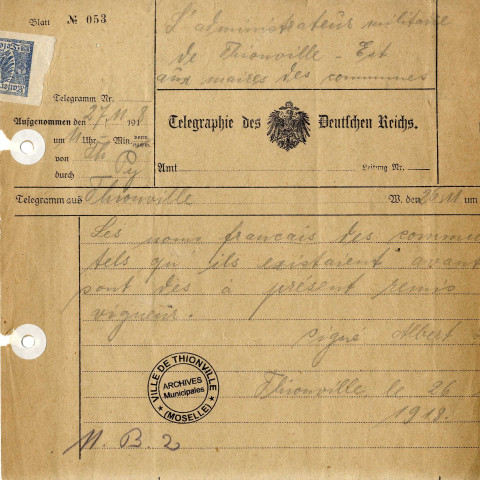 Blatt № 053
L'administrateur militaire
de Thionville - Est
aux maires des communes
Telegramm Nr.
Aufgenommen den 27/11 1918
um 11 Uhr Min.
von Th
durch Py
Telegraphie des Deutschen Reichs.
Amt Leitung Nr.
Telegramm aus Thionville W. den 26/11 um
Les noms francais des commu
tels qu'ils existaient avant
sont dès à présent remis
vigueur.
signé Albert
Thionville le 26
1918
VILLE DE THIONVILLE
ARCHIVES
Municipales
(MOSELLE)
N. B. 2